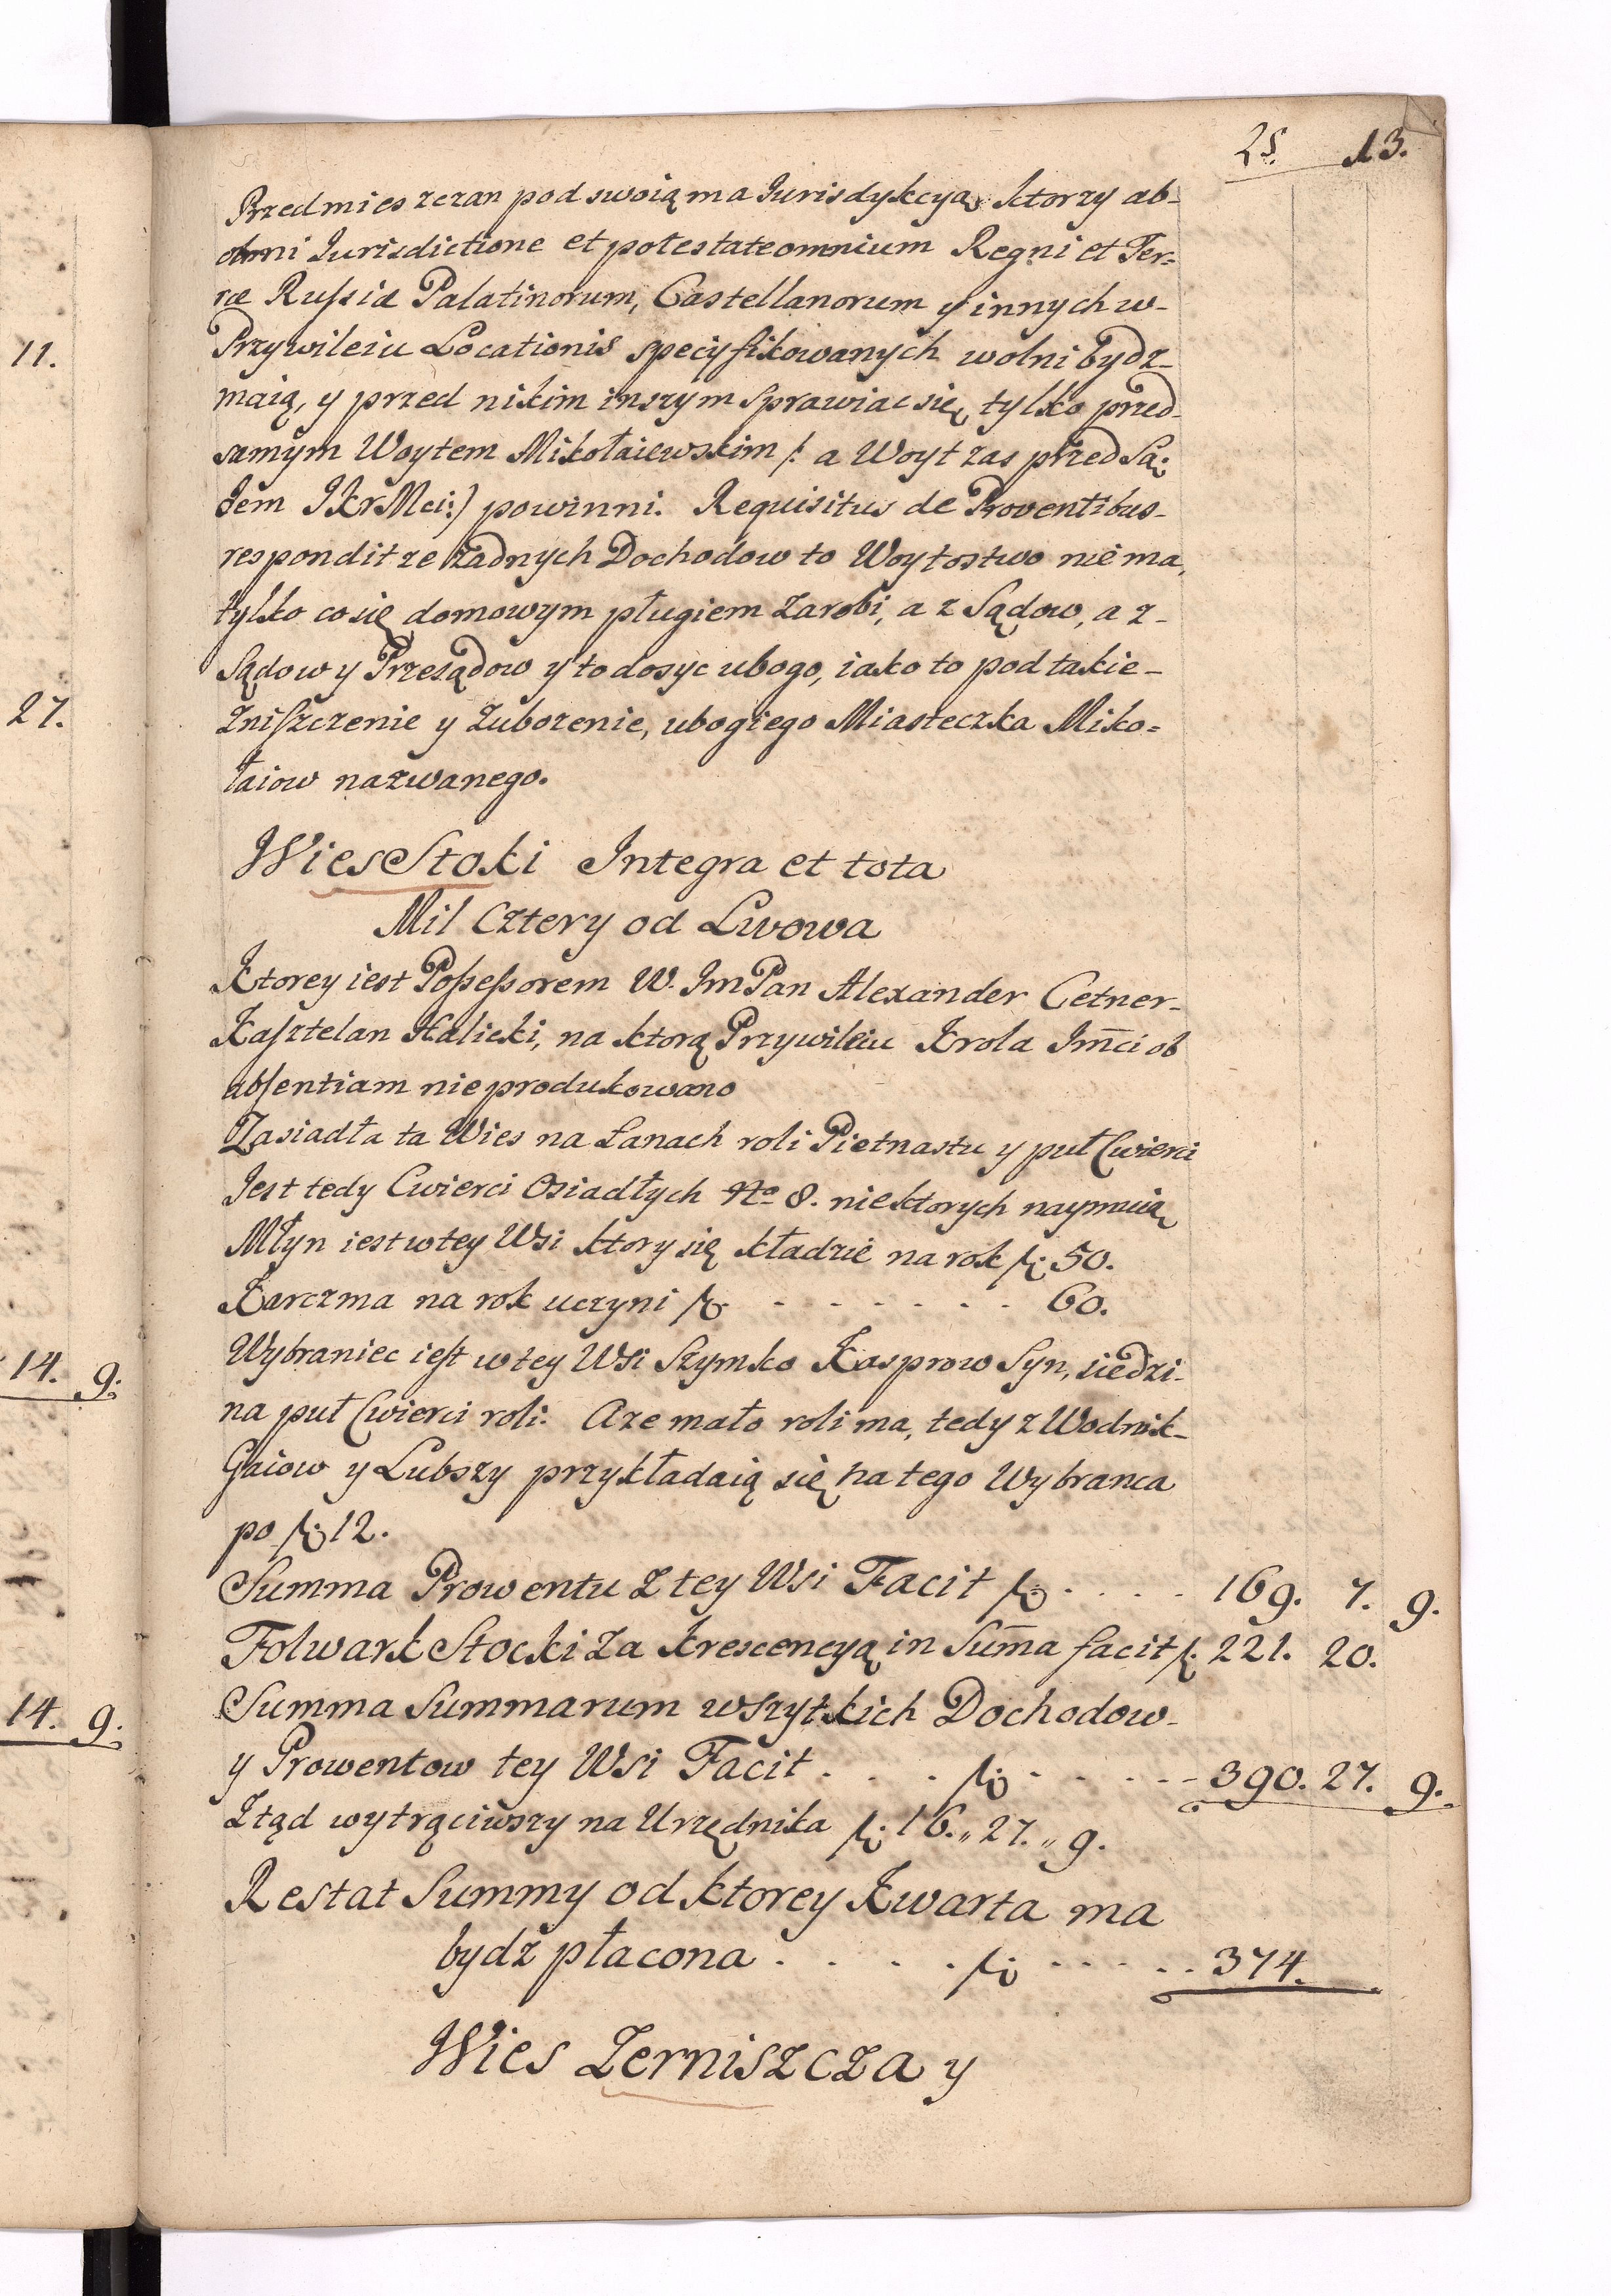 25. 13.
Przedmieszczan pod swoią ma Jurisdykcyą, ktorzy ab-
omni Jurisdictione et potestate omnium Regni et Ter=
ræ Rußiæ Palatinorum, Castellanorum y innych w-
Przywileiu Locationis specyfikowanych wolni bydz-
maią, y przed nikim inszym sprawiac się, tylko przed-
samym Woytem Mikołaiewskim /: a Woyt zas przed Są:
dem JKrMci:) powinni. Requisitus de Proventibus-
respondit ze żadnych Dochodow to Woytostwo nie ma,
tylko co się domowym pługiem zarobi, a z Sądow, a z-
Sądow y Przesądow y to dosyc ubogo, iako to pod takie-
Zniszczenie y Zubozenie, ubogiego Miasteczka Miko=
łaiow nazwanego.
Wies Stoki Integra et tota
Mil Cztery od Lwowa
Ktorey iest Poßeßorem W. ImPan Alexander Cetner-
Kasztelan Halicki, na ktorą Przywileiu Krola Jm̄ci ob
absentiam nie produkowano
Zasiadła ta Wies na Łanach roli Pietnastu y puł Cwierci
Jest tedy Cwierci Osiadłych No 8. niektorych naymuią
Młyn iest w tey Wsi ktory się kładzie na rok f: 50.
Karczma na rok uczyni f: - - - - - - - 60.
Wybraniec iest w tey Wsi Szymko Kasprow Syn, siedzi-
na puł Cwierci roli. A ze mało roli ma, tedy z Wodnik-
Gaiow y Lubszy przykładaią się na tego Wybranca
po f: 12.
Summa Prowentu z tey Wsi Facit f: - - - - 169. 7. 9.
Folwark Stocki za krescencyą in Sum̄a facit f: 221. 20.
Summa Summarum wszytkich Dochodow-
y Prowentow tey Wsi Facit . . . f: - - - - - 390. 27. 9.
Ztąd wytrąciwszy na Urzędnika f: 16. „ 27. „ 9.
Restat Summy od ktorey Kwarta ma
bydź płacona . . . . f: - - - - - 374.
Wies Zerniszcza y
11.
27.
14. 9.
14. 9.